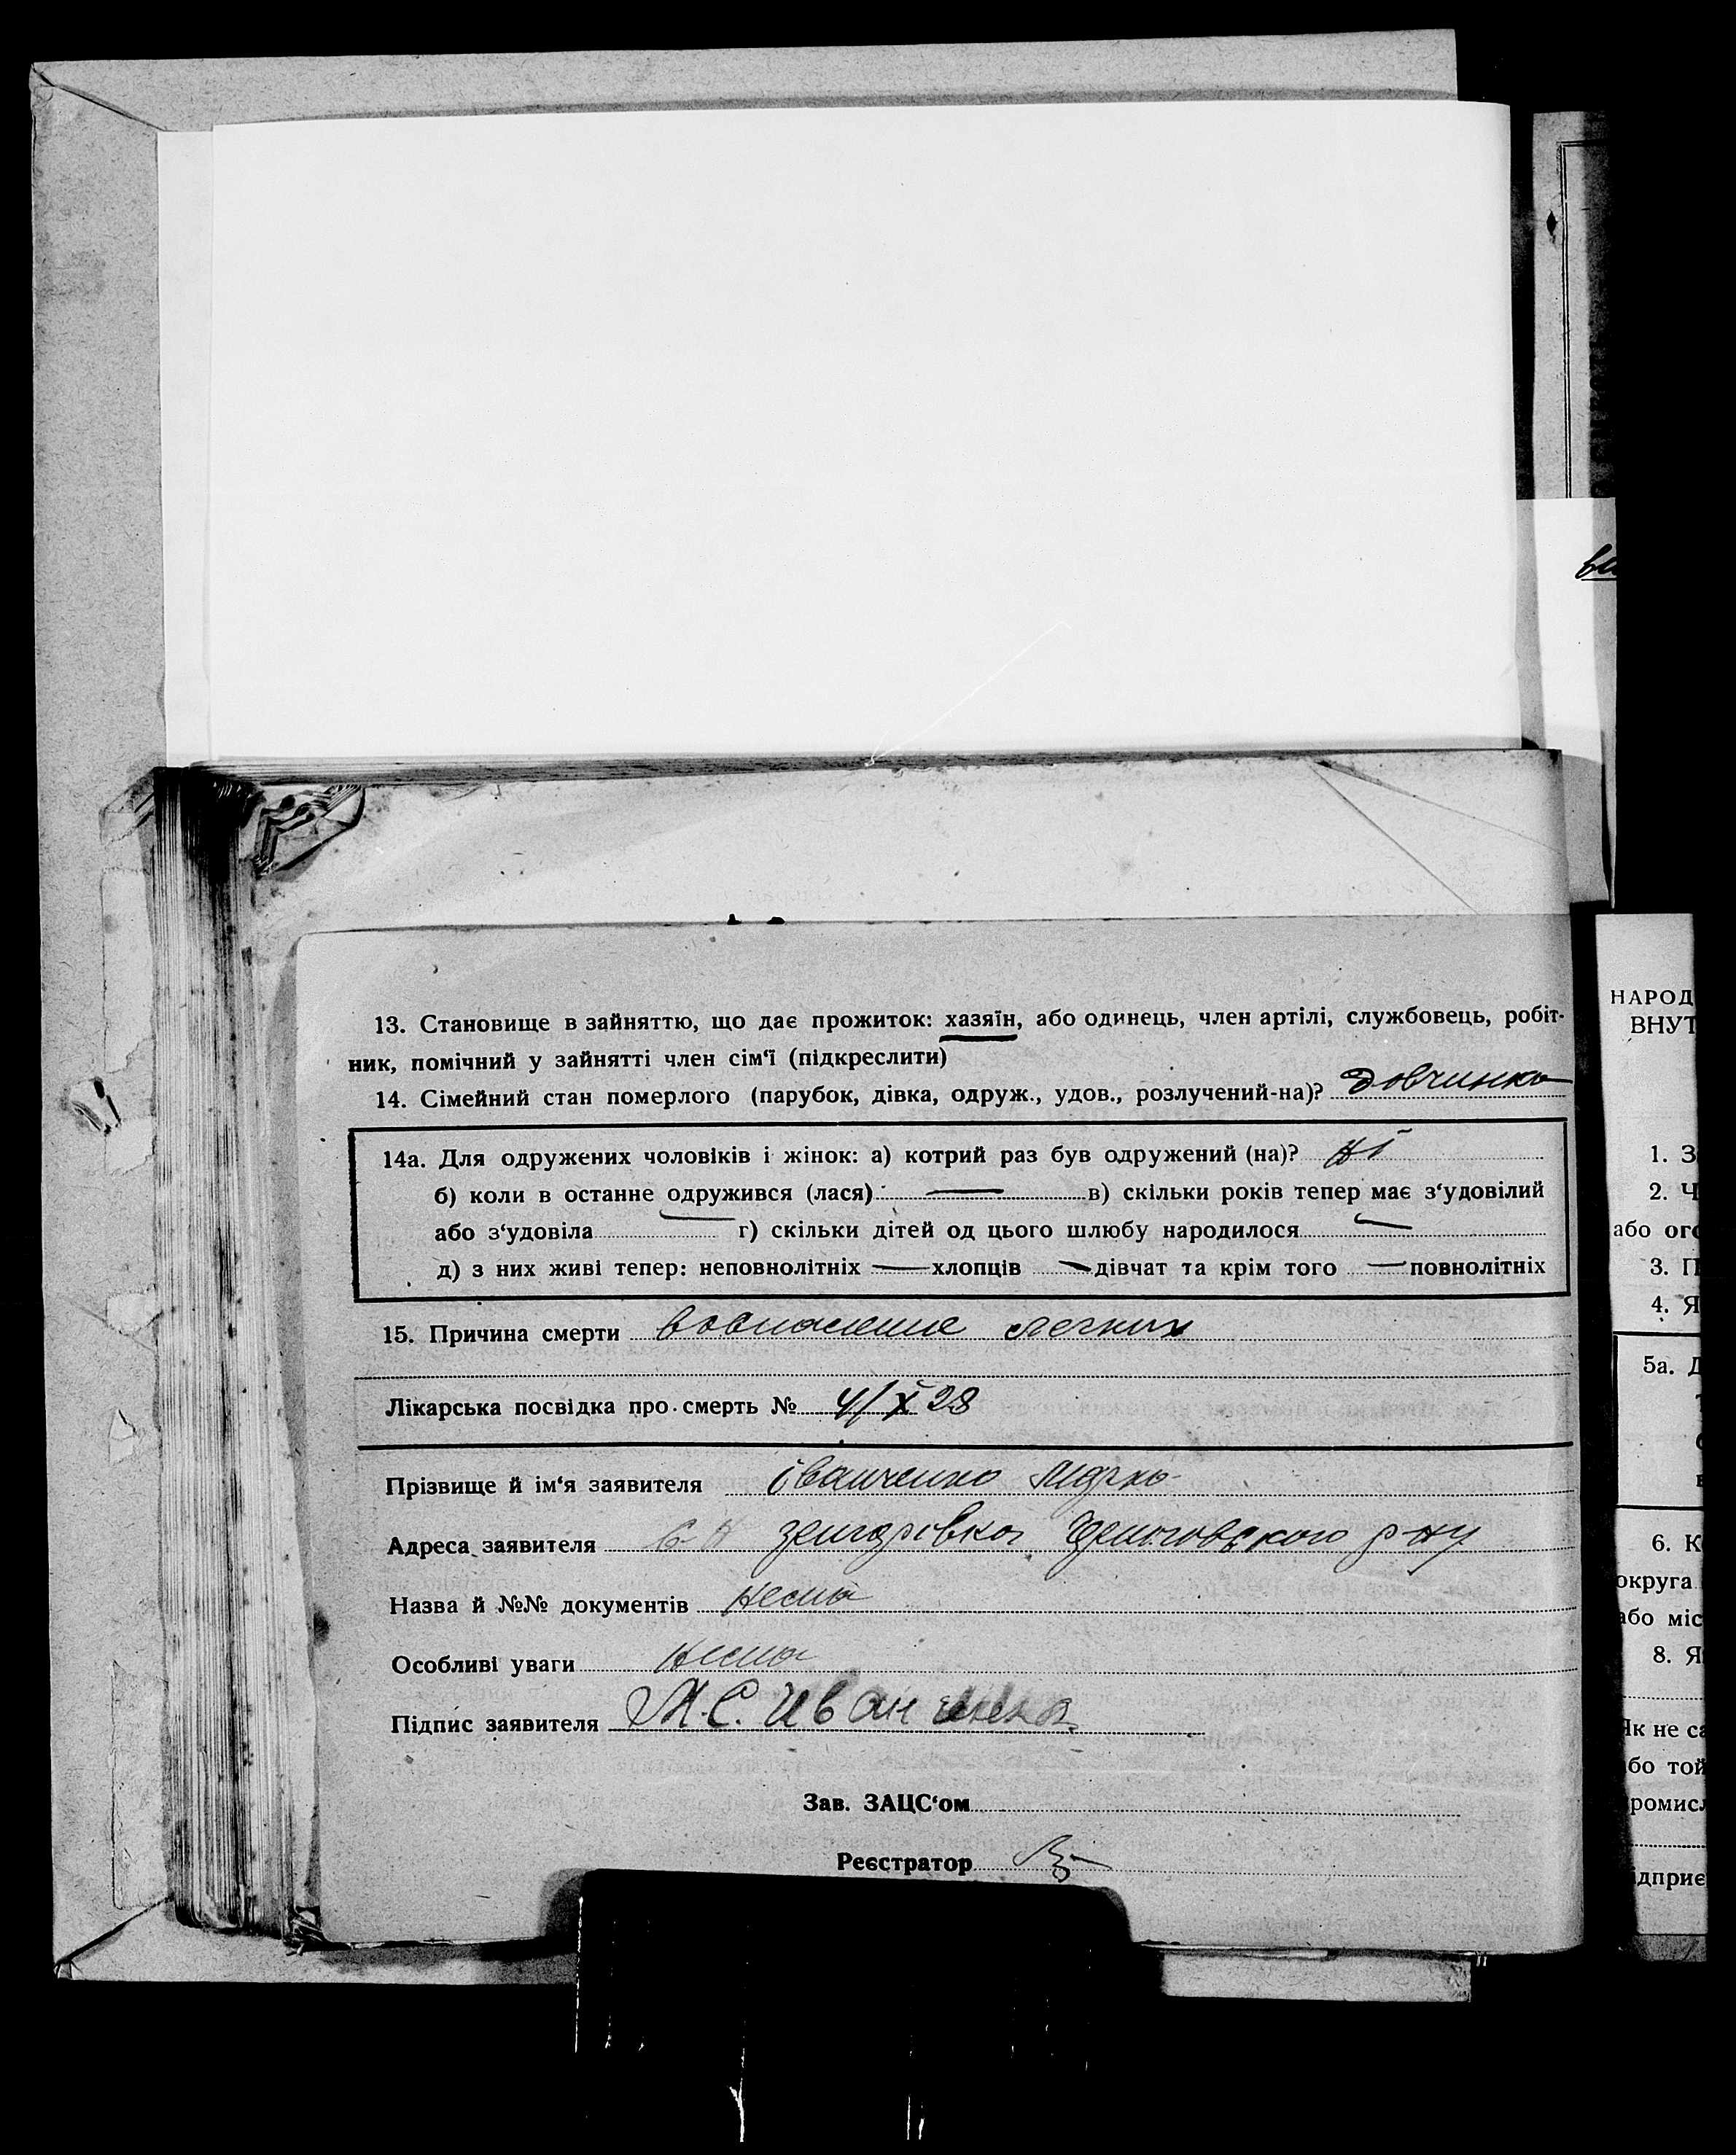 13. Становище в зайняттю, що дає прожиток: хазяїн, або одинець, член артілі, службовець, робіт-
ник, помічний у зайнятті член сім‘ї (підкреслити)
14. Сімейний стан померлого (парубок, дівка, одруж., удов., розлучений-на)? довчинка
14а. Для одружених чоловіків і жінок: а) котрий раз був одружений (на)? ні
б) коли в останнє одружився (лася) — в) скільки років тепер має з‘удовілий
або з‘удовіла — г) скільки дітей од цього шлюбу народилося —
д) з них живі тепер: неповнолітніх — хлопців — дівчат та крім того — повнолітніх
15. Причина смерти воспаление легких
Лікарська посвідка про смерть № 4/X 28
Прізвище й ім‘я заявителя іванченко
Адреса заявителя р-ну
Назва й №№ документів нема
Особливі уваги нема
Підпис заявителя М. С. Иванченко
Зав. ЗАЦС‘ом
Реєстратор
НАРОД
ВНУТ
1. З
2. Ч
або ого
3. П
4. Я
5а. Д
6. К
округа
або міс
8. Я
Як не са
або той
промисл
ідприє